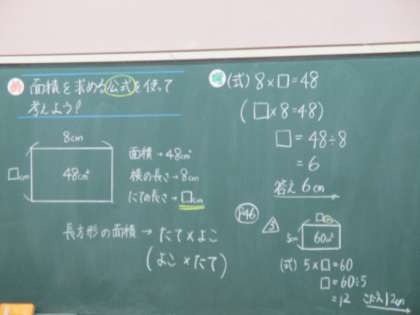 め 面積を求める公式を使って
考えよう！
8cm
□cm
48cm²
面積→48cm²
横の長さ→8cm
たての長さ→□cm
長方形の面積→たて×よこ
(よこ×たて)
(式) 8×□=48
(□×8=48)
□=48÷8
=6
答え 6cm
P46
3
□
5cm
60cm²
(式) 5×□=60
□=60÷5
=12 こたえ12cm